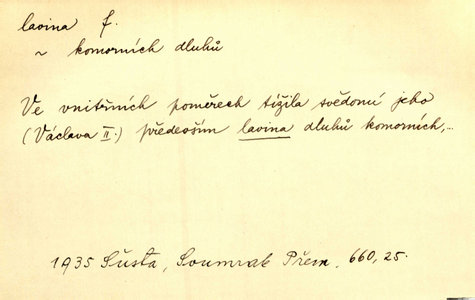 lavina f.
~ komorních dluhů
Ve vnitřních poměrech tížila svědomí jeho
(Václava II.) především lavina dluhů komorních,...
1935 Šusta, Soumrak Přem. 660, 25.